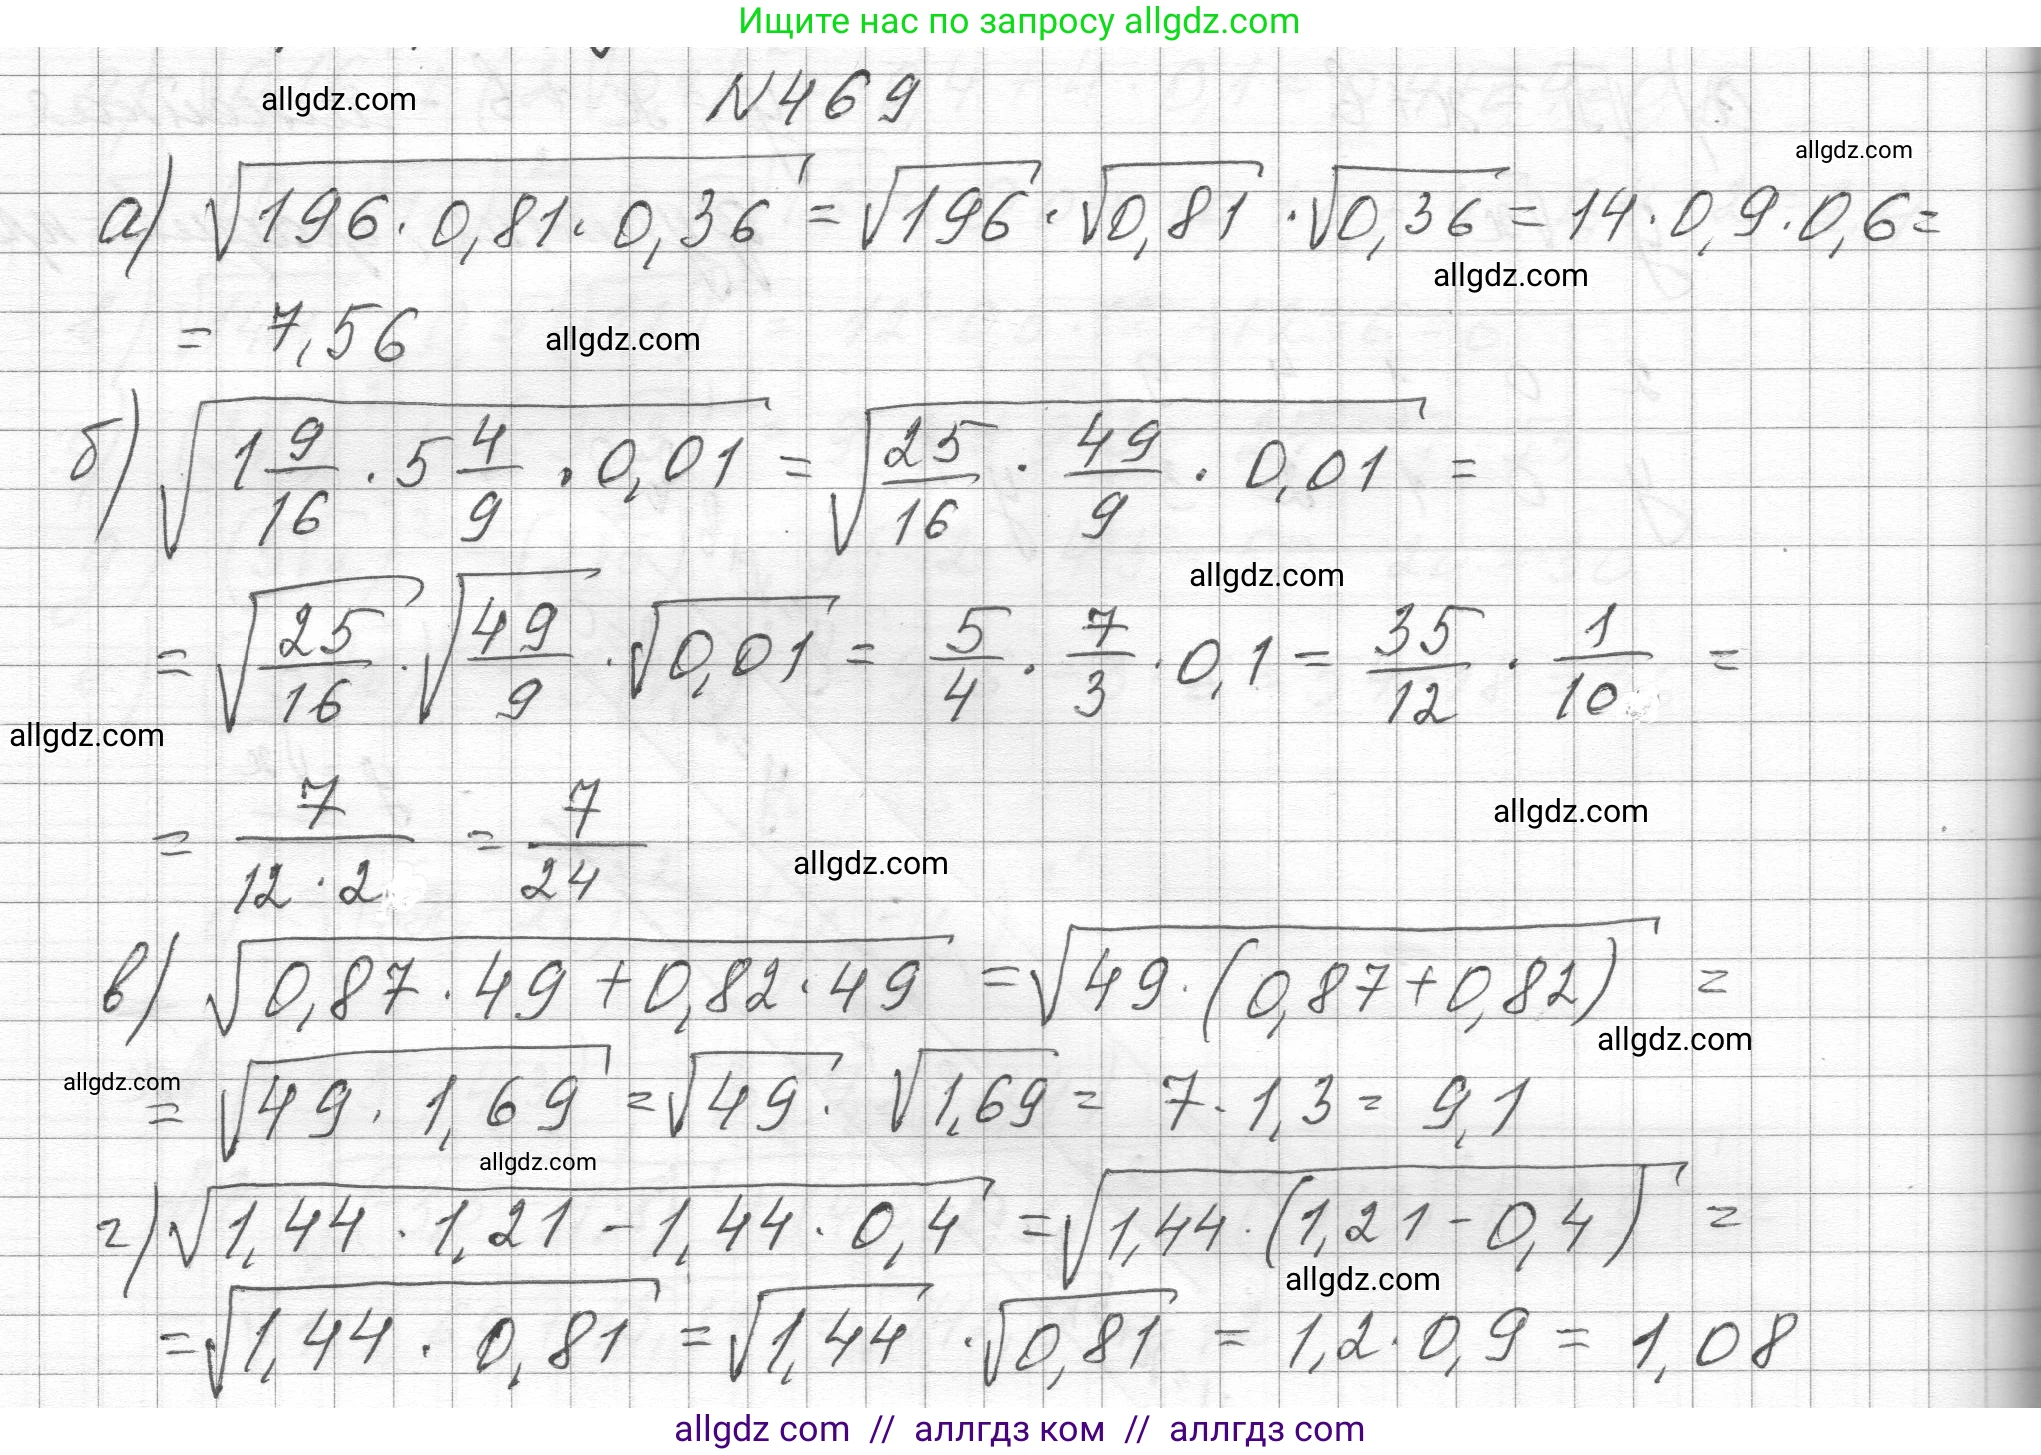 Ищите нас по запросу allgdz.com
N469
allgdz.com
allgdz.com
а) √(196 · 0,81 · 0,36) = √196 · √0,81 · √0,36 = 14 · 0,9 · 0,6 =
allgdz.com
= 7,56
allgdz.com
б) √(1 9/16 · 5 4/9 · 0,01) = √(25/16 · 49/9 · 0,01) =
allgdz.com
= √(25/16) · √(49/9) · √0,01 = 5/4 · 7/3 · 0,1 = 35/12 · 1/10 =
allgdz.com
allgdz.com
= 7/(12 · 2) = 7/24
allgdz.com
в) √(0,87 · 49 + 0,82 · 49) = √(49 · (0,87 + 0,82)) =
allgdz.com
allgdz.com
= √(49 · 1,69) = √49 · √1,69 = 7 · 1,3 = 9,1
allgdz.com
г) √(1,44 · 1,21 - 1,44 · 0,4) = √(1,44 · (1,21 - 0,4)) =
allgdz.com
= √(1,44 · 0,81) = √1,44 · √0,81 = 1,2 · 0,9 = 1,08
allgdz com // аллгдз ком // аллгдз com